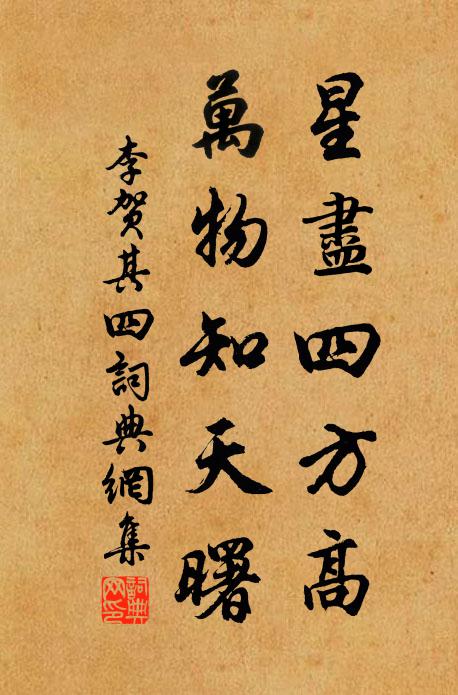 星盡四方高
萬物知天曙
李賀其四詞典網集
詞典
网印